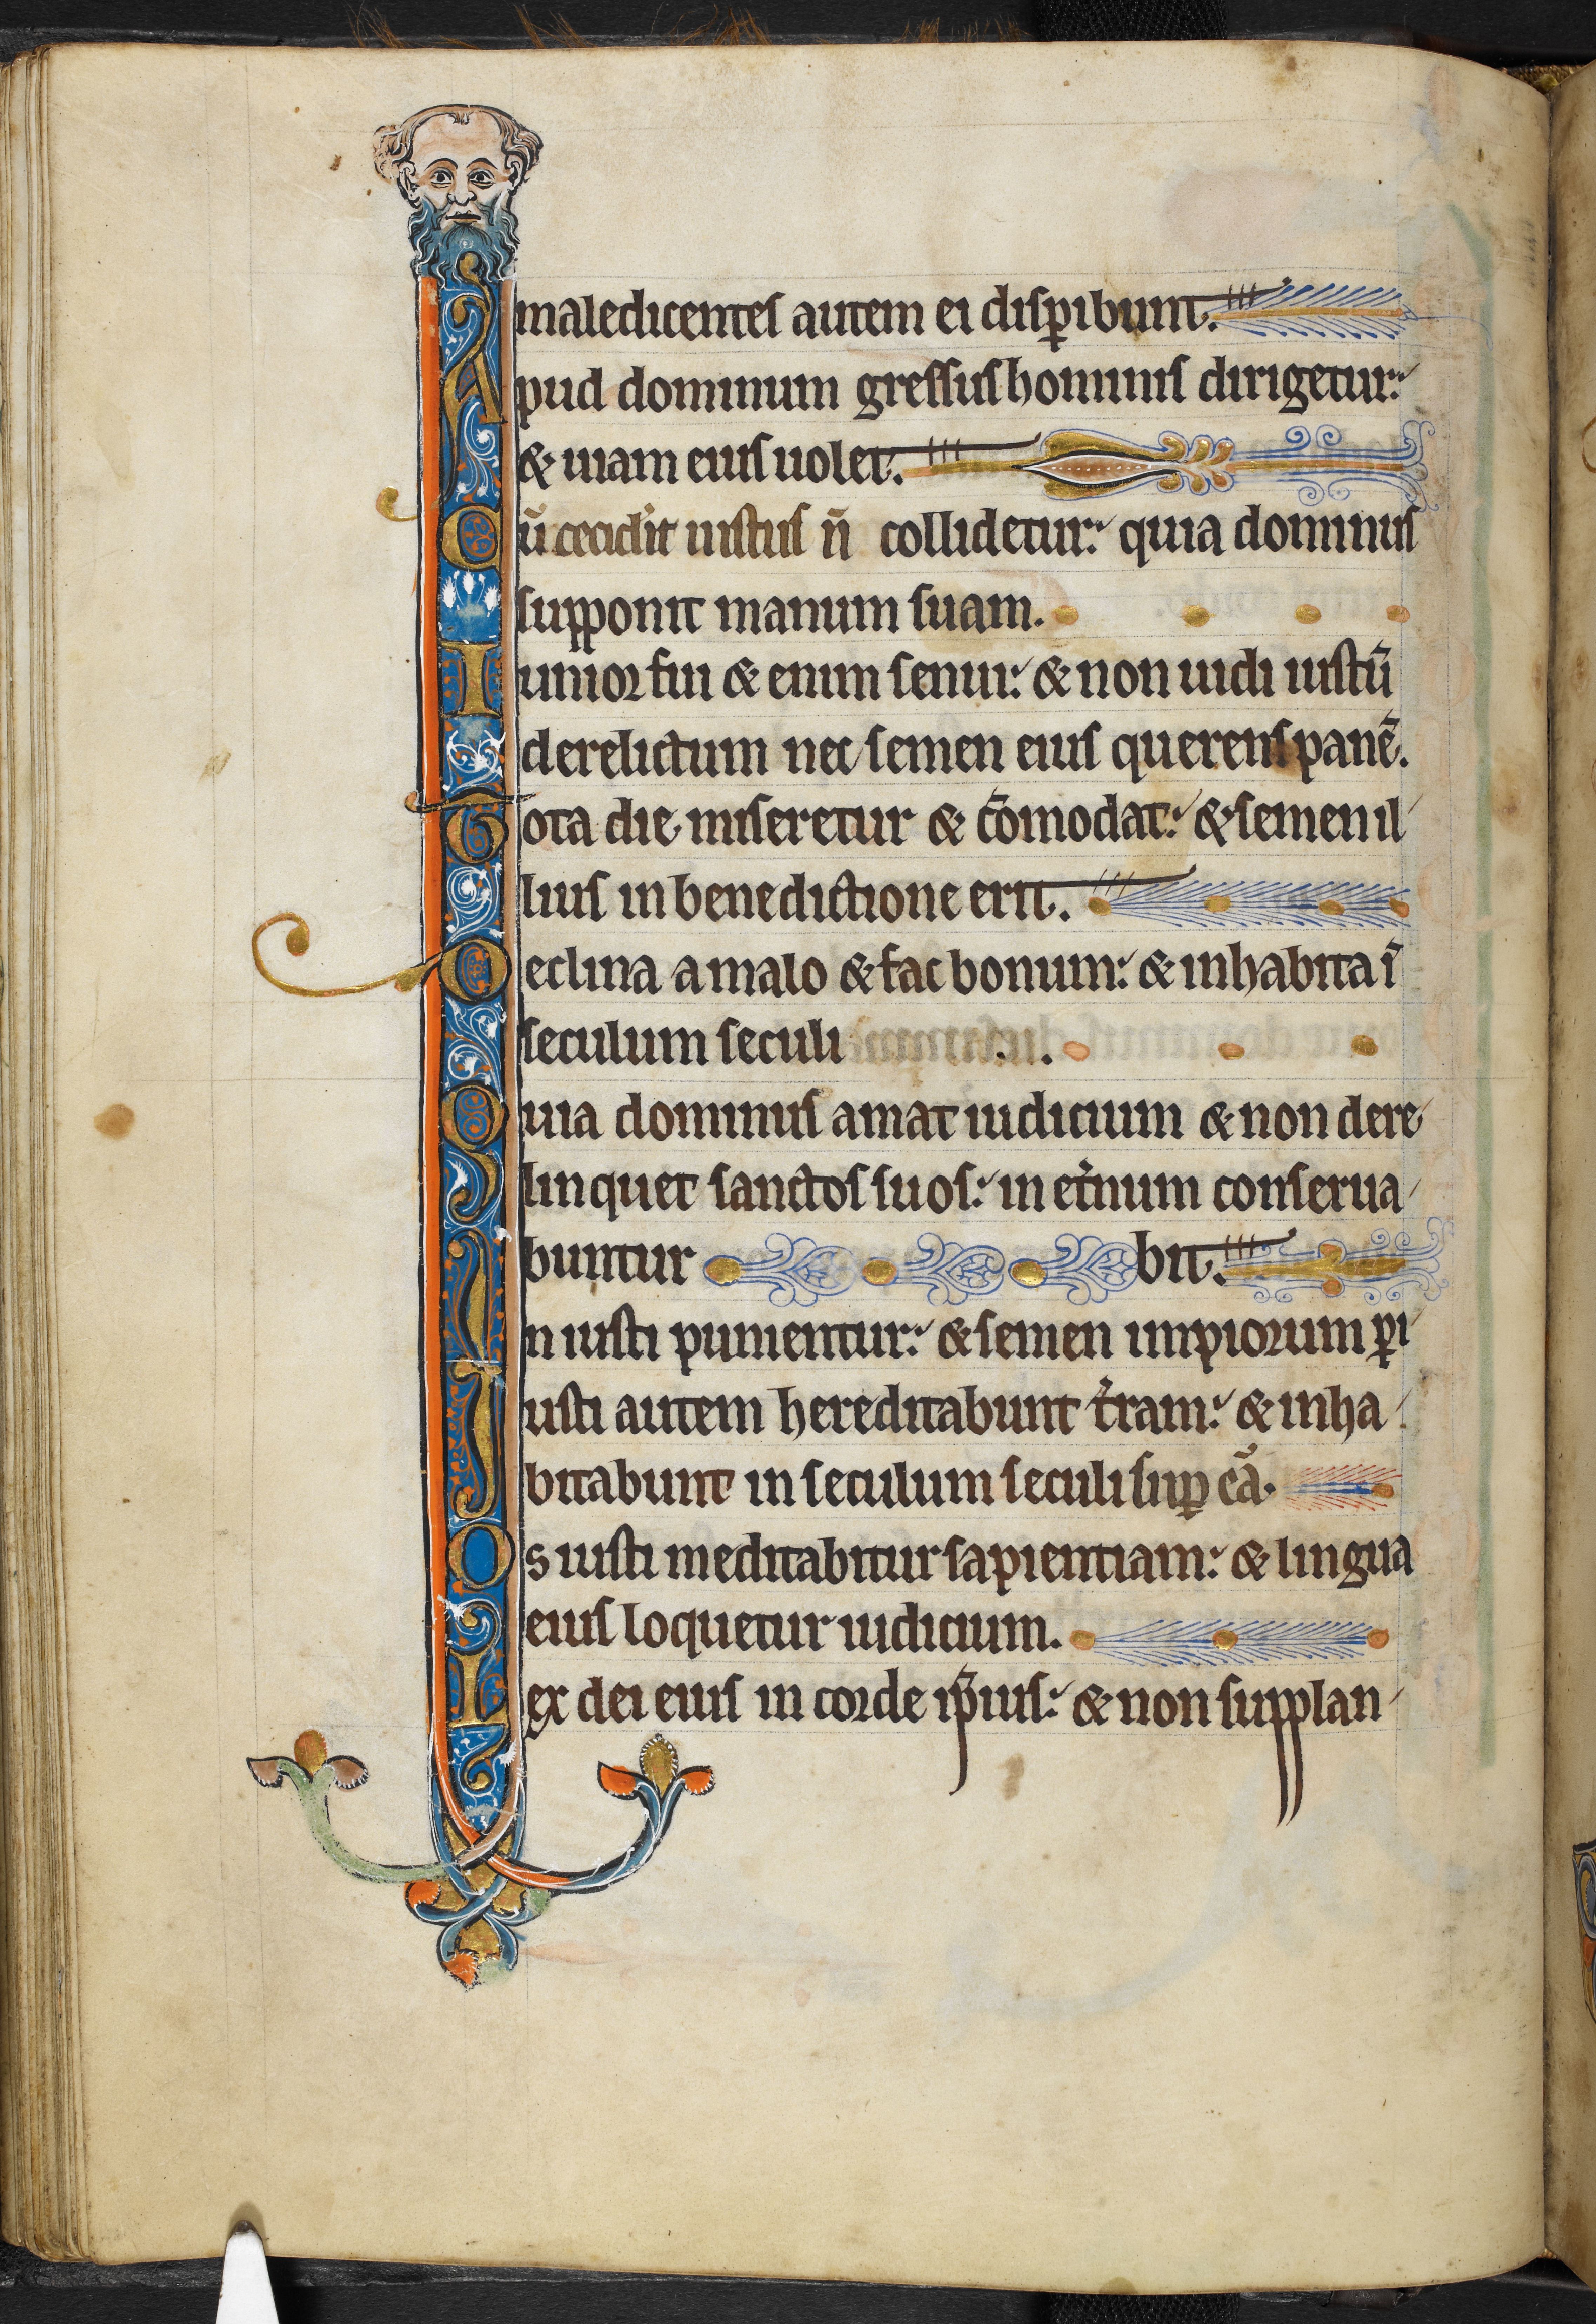 maledicentes autem ei disꝑibunt.
Apud dominum gressus hominis dirigetur:
& uiam eius uolet.
Cū cecid'it iustus n̄ collidetur: quia dominus
supponit manum suam.
Iunior fui & enim senui: & non uidi iustū
derelictum nec semen eius querens panē.
Tota die miseretur & cōmodat: & semen il
lius in benedictione erit.
Declina a malo & fac bonum: & inhabita ī
seculum seculi
Quia dominus amat iudicium & non dere
linquet sanctos suos: in et'num conserua
buntur bit.
In iusti punientur: & semen impiorum ꝑi
Iusti autem hereditabunt t'ram: & inha
bitabunt in seculum seculi suꝑ eā.
Os iusti meditabitur sapientiam: & lingua
eius loquetur iudicium.
Lex dei eius in corde ip̄ius: & non supplan